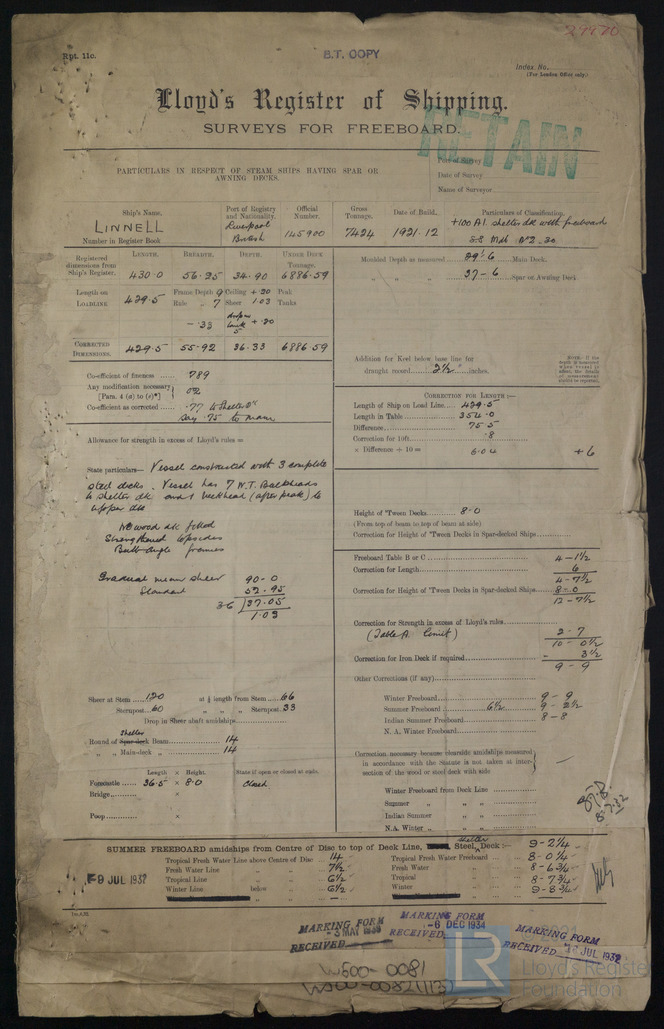 29970
Rpt. 11c.
B.T. COPY
Index No.
(For London Office only)
Lloyd's Register of Shipping.
SURVEYS FOR FREEBOARD.
RETAIN
PARTICULARS IN RESPECT OF STEAM SHIPS HAVING SPAR OR
AWNING DECKS.
Port of Survey
Date of Survey
Name of Surveyor
Ship's Name.
LINNELL
Number in Register Book
Port of Registry and Nationality.
Liverpool
British
Official Number.
145900
Gross Tonnage.
7424
Date of Build.
1921.12
Particulars of Classification.
+100 A1 shelter dk with freeboard
Registered dimensions from Ship's Register.
LENGTH. 430.0
BREADTH. 56.25
DEPTH. 34.90
UNDER DECK Tonnage. 6886.59
Length on LOADLINE 429.5
Frame Depth 9 Ceiling +.20 Peak
Ride „ 7 Sheer 1.03 Tanks
-.33
+.20
CORRECTED DIMENSIONS. 429.5 55-92 36.33 6886.59
Moulded Depth as measured 29'.6 Main Deck.
„ „ „ 37-6 Spar or Awning Deck
Addition for Keel below base line for
draught record 2½ inches.
Co-efficient of fineness 789
Any modification necessary
[Para. 4 (a) to (e)*] 02
Co-efficient as corrected .77 to Shelter Dk
say .75 to main
CORRECTION FOR LENGTH:—
Length of Ship on Load Line 429.5
Length in Table 354.0
Difference 75.5
Correction for 10ft. .8
× Difference ÷ 10 = 6.04 +6
Allowance for strength in excess of Lloyd's rules =
State particulars— Vessel constructed with 3 complete
steel decks. Vessel has 7 W.T. Bulkheads
to shelter dk and 1 bulkhead (after peak) to
upper dk
No wood dk fitted
Strengthened topsides
Bulb angle frames
Gradual mean sheer 90-0
Standard 52.95
36 ) 37.05
1.03
Height of 'Tween Decks 8-0
(From top of beam to top of beam at side)
Correction for Height of 'Tween Decks in Spar-decked Ships
Freeboard Table B or C 4-1½
Correction for Length 6
4-7½
Correction for Height of 'Tween Decks in Spar-decked Ships 8-0
12-7½
Correction for Strength in excess of Lloyd's rules
(Table A limit) 2-7
10-0½
Correction for Iron Deck if required - 3½
9-9
Other Corrections (if any)
Winter Freeboard 9-9
Summer Freeboard 6½ 9-2½
Indian Summer Freeboard 8-8
N. A. Winter Freeboard
Sheer at Stem 120 at ⅛ length from Stem 66
Sternpost 60 „ „ „ Sternpost 33
Drop in Sheer abaft amidships
Shelter
Round of Spar-deck Beam 14
„ „ Main-deck „ 14
Correction necessary because clearside amidships measured
in accordance with the Statute is not taken at inter-
section of the wood or steel deck with side
Length × Height. State if open or closed at ends.
Forecastle 36.5 × 8.0 Closed
Bridge ×
Poop ×
Winter Freeboard from Deck Line
Summer „ „ „
Indian Summer „ „
N.A. Winter „ „ „
8.7.32
SUMMER FREEBOARD amidships from Centre of Disc to top of Deck Line, Steel, shelter Deck:— 9-2¼
Tropical Fresh Water Line above Centre of Disc 14
Fresh Water Line „ „ 7½
Tropical Line „ „ 6½
Winter Line below „ 6½
Tropical Fresh Water Freeboard 8-0¼
Fresh Water „ 8-6¾
Tropical „ 8-7¾
Winter „ 9-8¾
9 JUL 1932
MARKING FORM
RECEIVED
MARKING FORM
-6 DEC 1934
RECEIVED
MARKING FORM
RECEIVED JUL 1932
W500-0081
LR
Lloyd's Register
Foundation